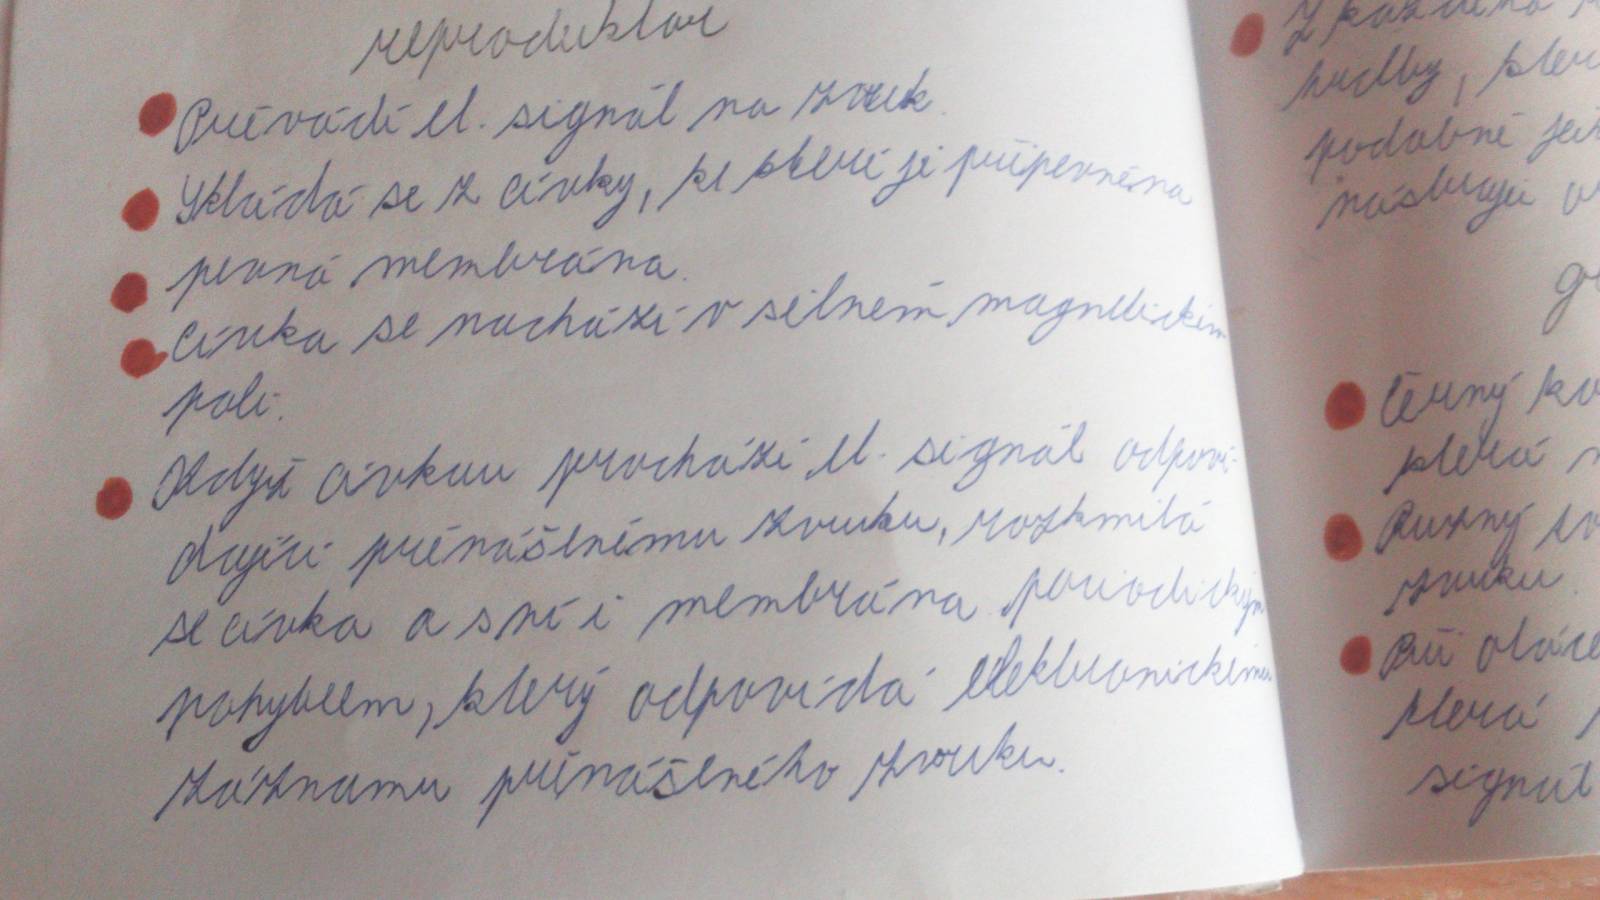 reproduktor
Převádí el. signál na zvuk.
Skládá se z cívky, ke které je připevněna
pevná membrána.
Cívka se nachází v silném magnetickém
poli.
Když cívkou prochází el. signál odpoví-
dající přenášenému zvuku, rozkmitá
se cívka a s ní i membrána periodickým
pohybem, který odpovídá elektronickému
záznamu přenášeného zvuku.
Z každého
hudby, kter
podobně jak
nástroji
Černý ko
která
Ruzný
zvuku.
Při otáče
která
signál